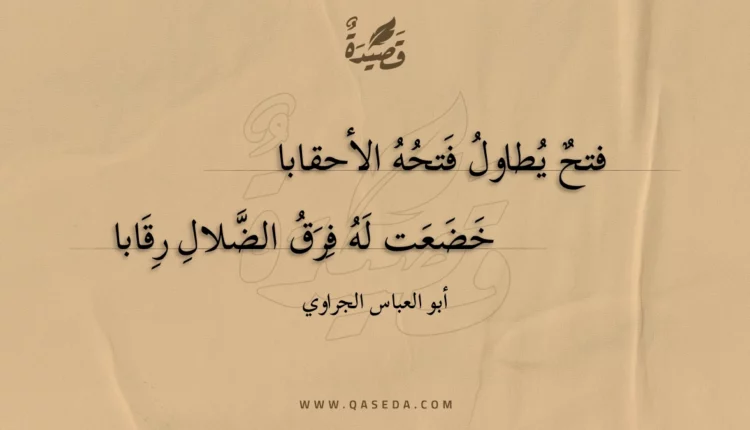 قَصِيْدَةٌ
فتحٌ يُطاولُ فَتحُهُ الأحقابا
خَضَعَت لَهُ فِرَقُ الضَّلالِ رِقَابا
أبو العباس الجراوي
WWW.QASEDA.COM